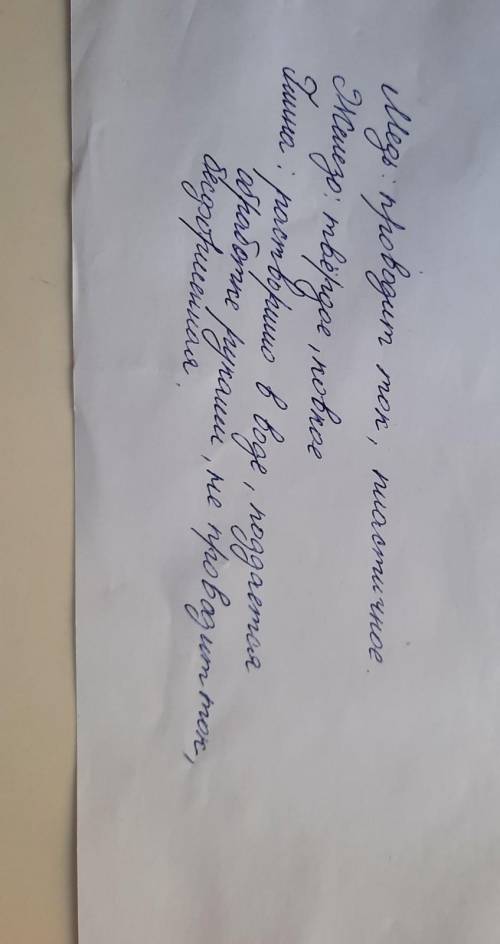 Медь: проводит ток, пластичное.
Железо: твёрдое, ковкое
Глина: растворимо в воде, поддается
обработке руками, не проводит ток,
бесформенная.